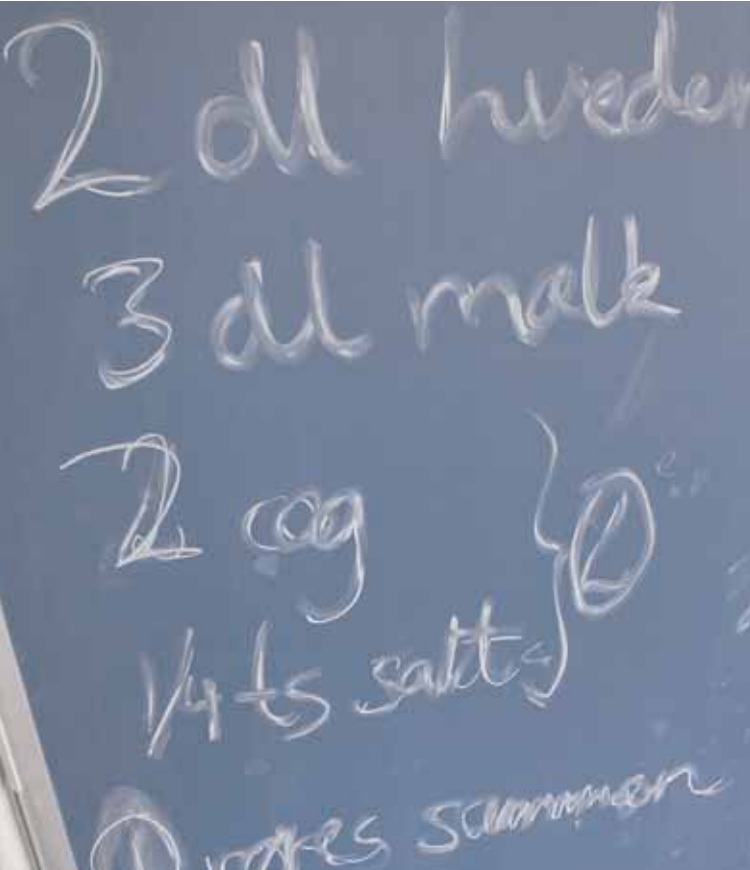 2 dl hveden
3 dl malk
2 æg
1/4 ts salt } ①
① røres sammen